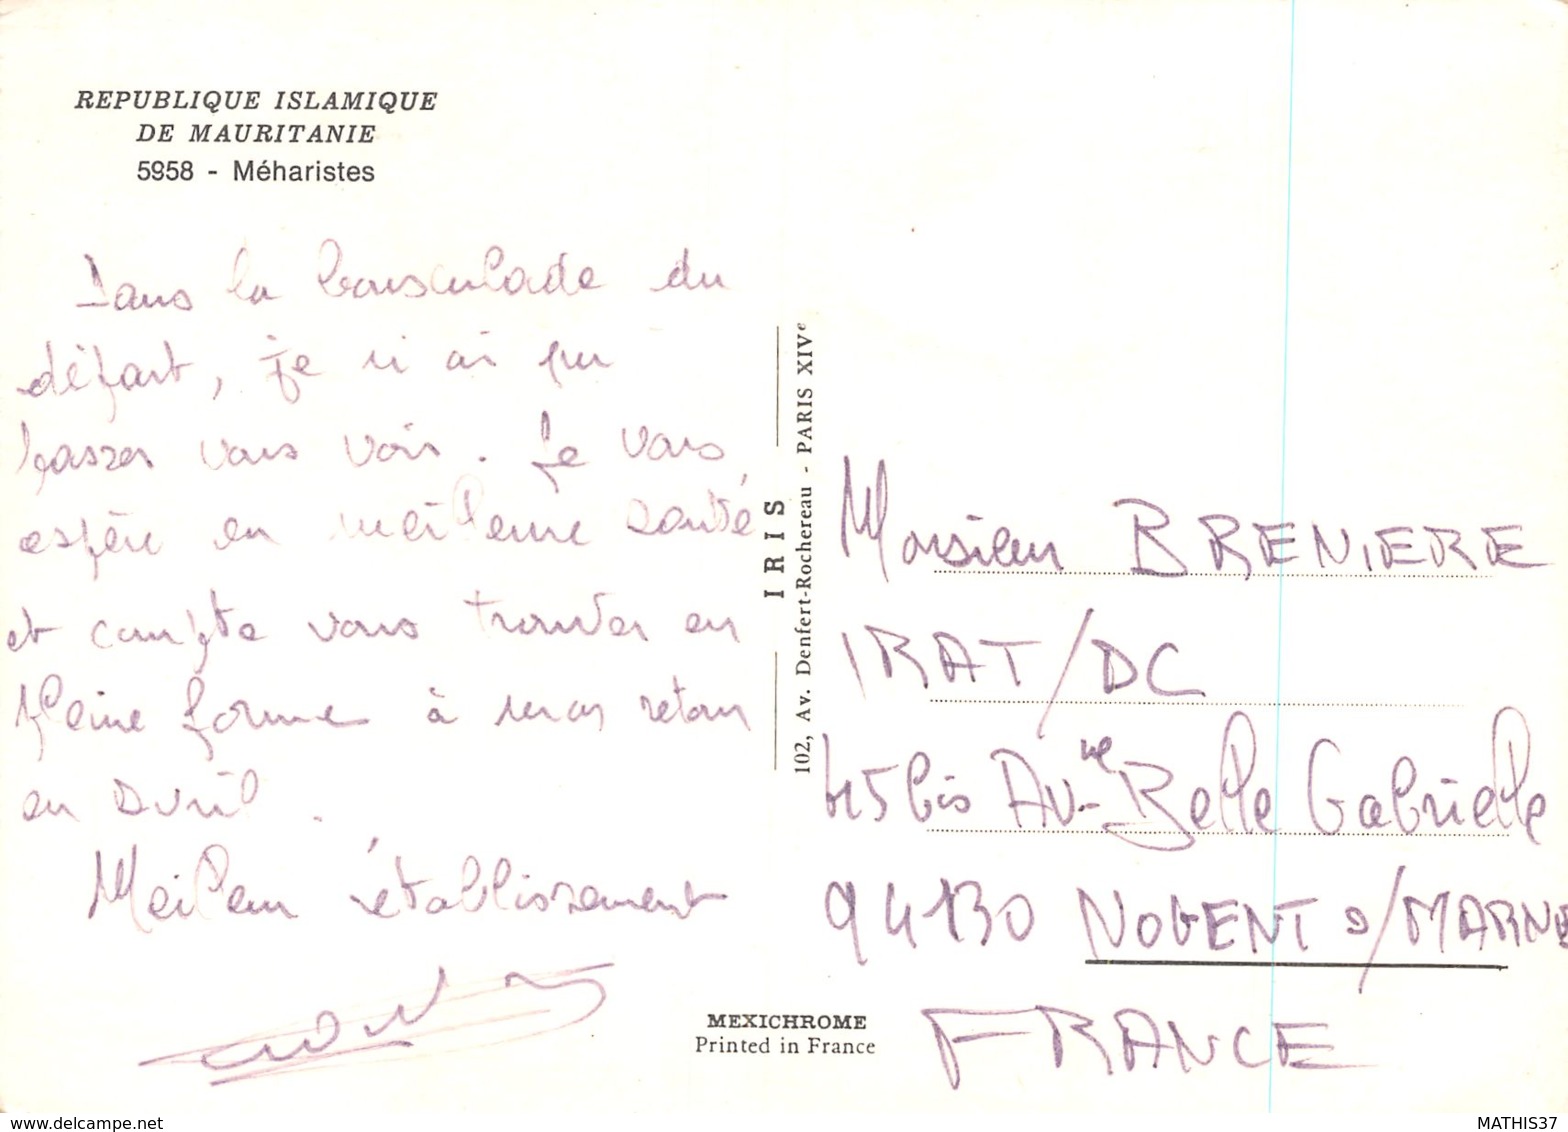 REPUBLIQUE ISLAMIQUE
DE MAURITANIE
5958 - Méharistes
Dans la bousculade du
départ, je n'ai pu
passer vous voir. Je vous
espère en meilleure santé
et compte vous trouver en
pleine forme à mon retour
en avril.
Meilleur établissement
IRIS
102, Av. Denfert-Rochereau - PARIS XIVe
Monsieur BRENIERE
IRAT/DC
45 bis Avne Belle Gabrielle
94130 NOGENT s/MARNE
FRANCE
MEXICHROME
Printed in France
www.delcampe.net
MATHIS37